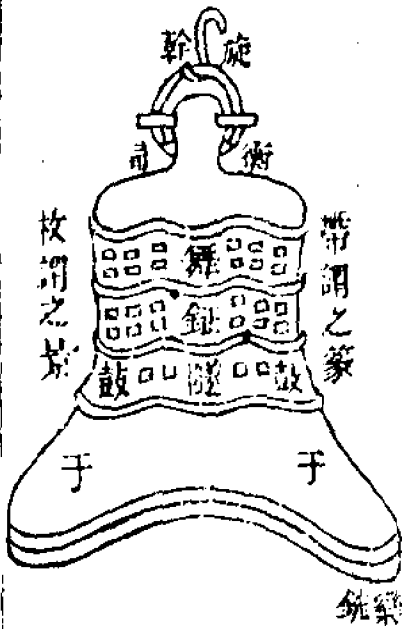 旋幹
衡甬
帶謂之篆
枚謂之景
舞
鉦
鼓隧鼓
于于
欒銑